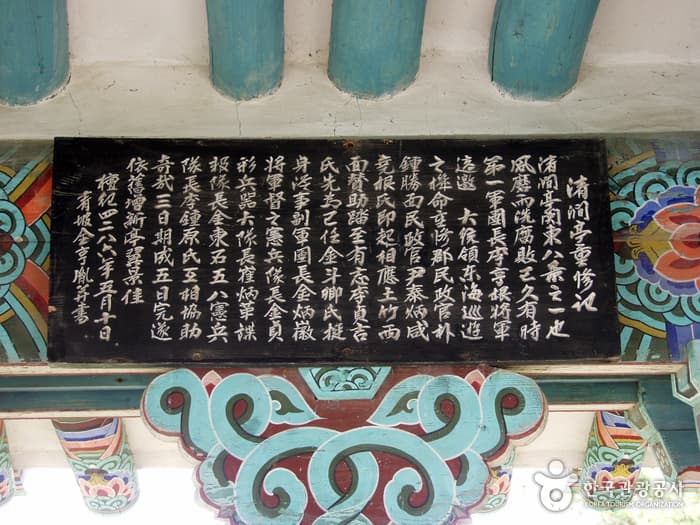 清澗亭重修記
清澗亭關東八景之一也
風磨雨洗腐敗已久有時
第一軍團長李亨根將軍
遠邀 大統領東海巡遊
之擇命重修郡民政官朴
鍾勝面民政官尹泰炳咸
竟根氏即起相應土竹西
面贊助踏至有志李貞言
氏先爲已任金斗卿氏挺
身從事副軍團長金炳徽
將軍督之憲兵隊長金貞
彩兵器大隊長崔炳華諜
報隊長金東石五八憲兵
隊長李鍾原氏互相協助
奇哉三日期成五日完遂
依舊增新淳兮景佳
檀紀四二八六年五月十日
青坡金亨胤并書
한국관광공사
KOREA TOURISM ORGANIZATION